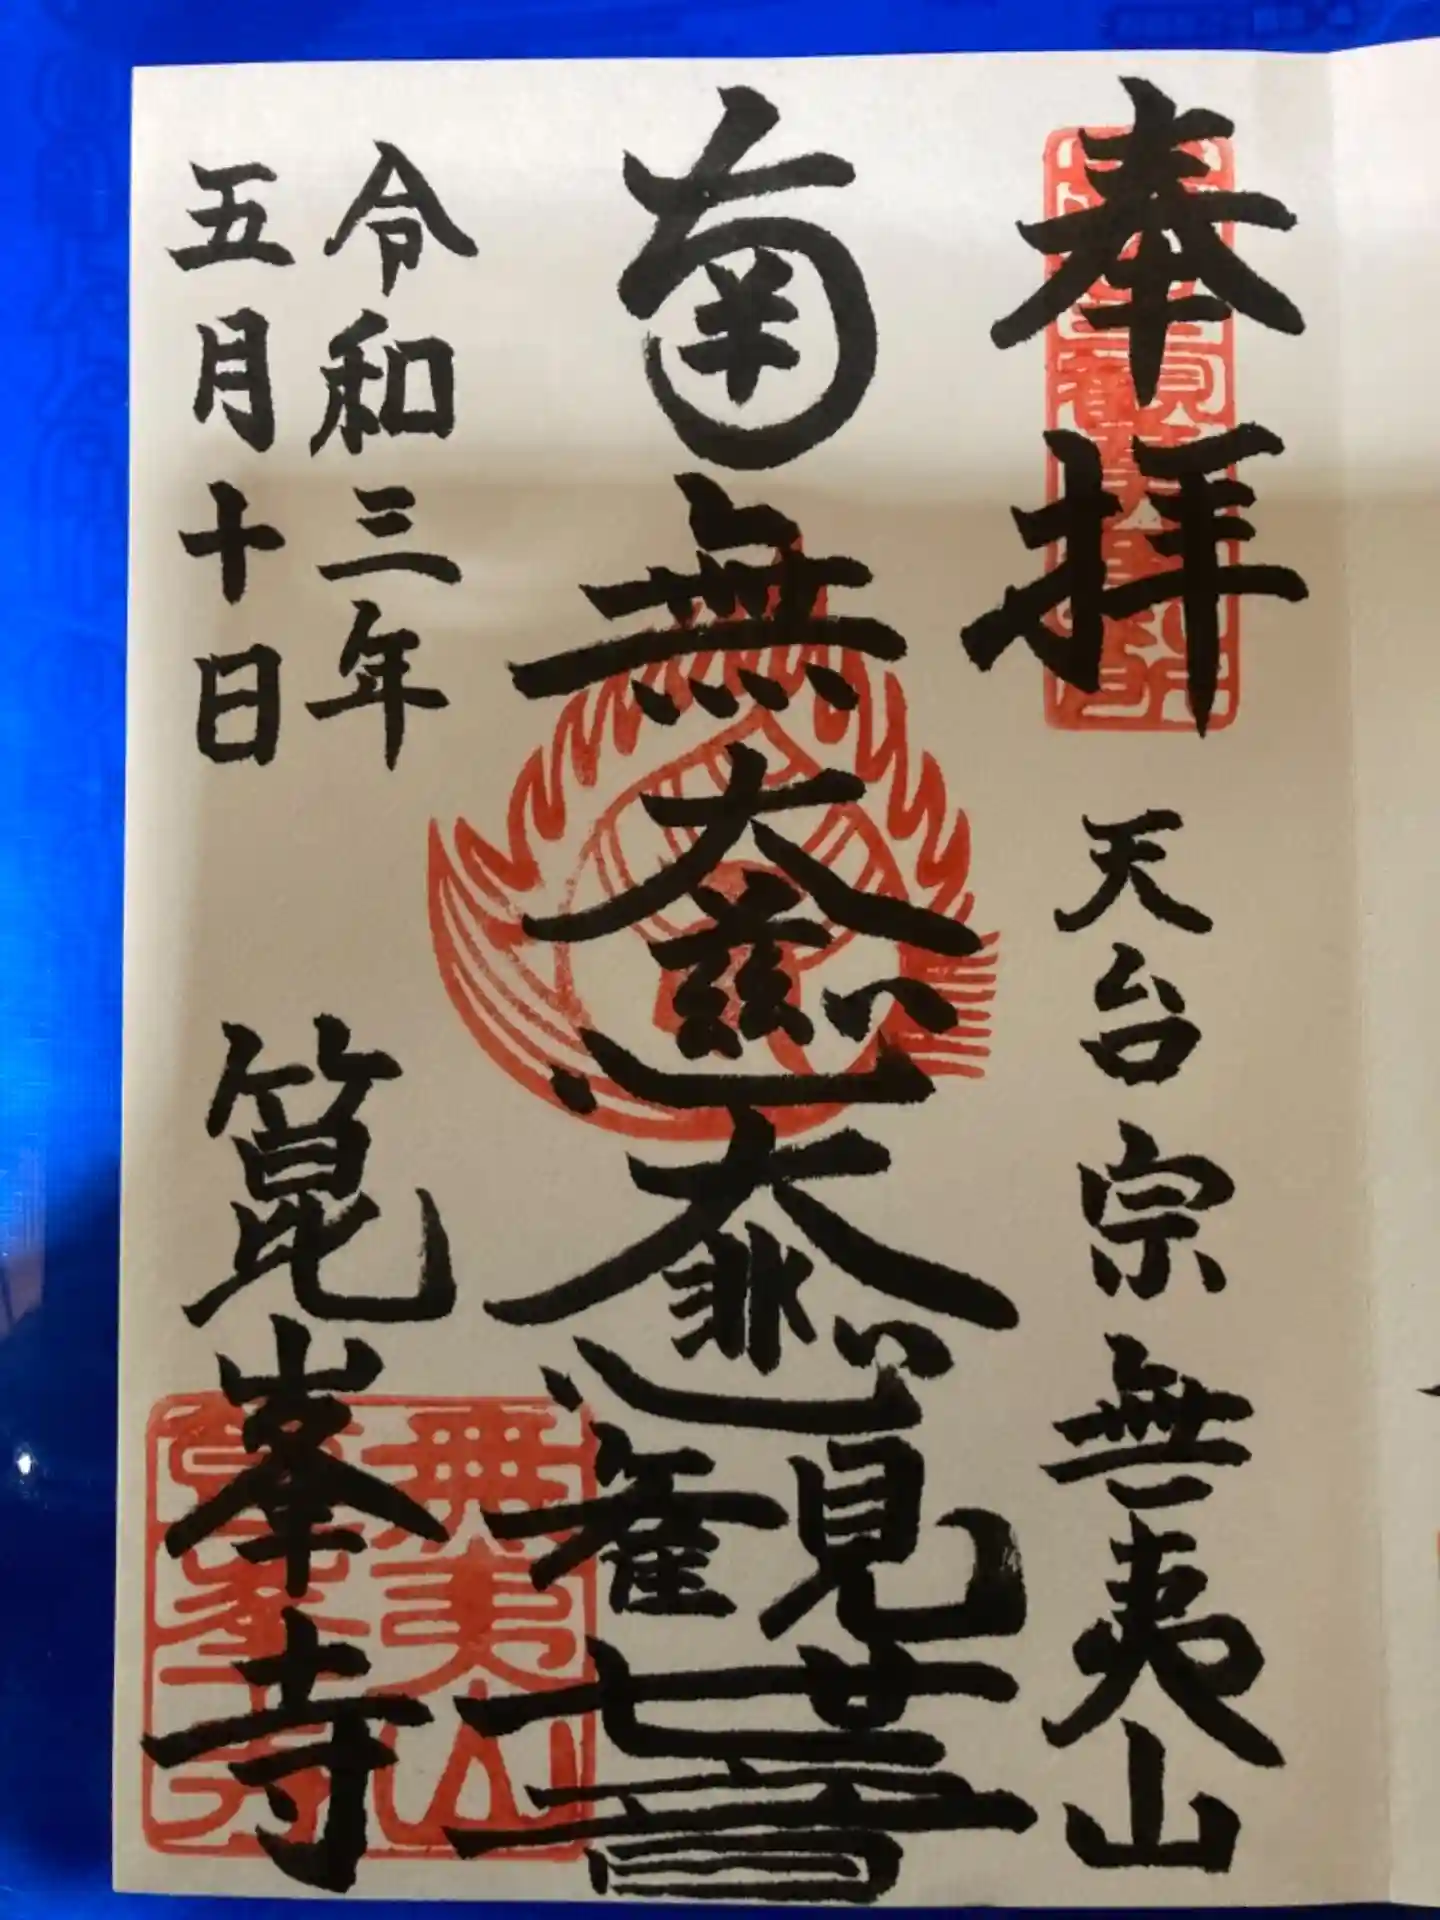 奉拝 天台宗 無夷山
南無大慈大悲観世音
令和三年
五月十日
箟峯寺
無夷山
箟峯寺